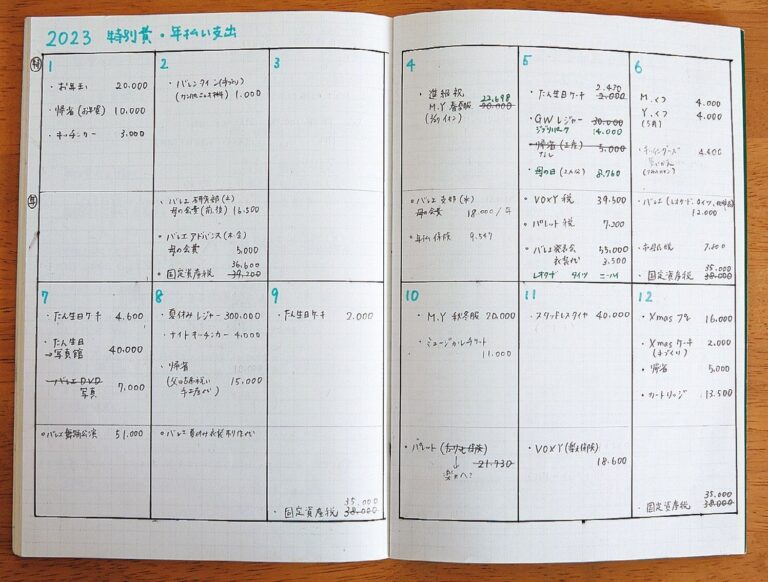 2023 特別費・年払い支出
特
1
・お年玉 20.000
・帰省(お年賀) 10.000
・キッチンカー 3.000
2
・バレンタイン(手づくり)
1.000
3
年
・バレエ 研究部(土)
母の会費(前後) 16.500
・バレエ アドバンス(木・金)
母の会費 5.000
36.600
・固定資産税 39.200
4
・進級祝
22.698
M.Y 春夏服 20.000
5
2.470
・たん生日ケーキ 2.000
・GWレジャー 30.000
ジブリパーク 14.000
・帰省(土産) 5.000
なし
・母の日(2人分) 8.760
6
M. 4.000
Y. 4.000
4.400
・バレエ 支部(年)
母の会費 18.000/年
・年払保険 9.547
・VOXY 税 39.500
・パレット 税 7.200
・バレエ発表会 55.000
衣装代 3.500
レオタード タイツ
・バレエ(レオタード、タイツ、
12.000
7.200
35.000
・固定資産税 38.000
7
・たん生日ケーキ 4.600
・たん生日
→写真館 40.000
・バレエDVD
写真 7.000
8
・夏休みレジャー 300.000
・ナイトキッチンカー 4.000
・帰省
15.000
9
・たん生日ケーキ 2.000
・バレエ舞踊公演 51.000
35.000
・固定資産税 38.000
10
・M.Y 秋冬服 20.000
・ミュージカルチケット
11.000
11
・スタッドレスタイヤ 40.000
12
・Xmas プレ 16.000
・Xmas ケーキ 2.000
(手づくり)
・帰省 5.000
・カートリッジ 13.500
・パレット(
21.730
楽天へ?
・VOXY(
18.600
35.000
・固定資産税 38.000